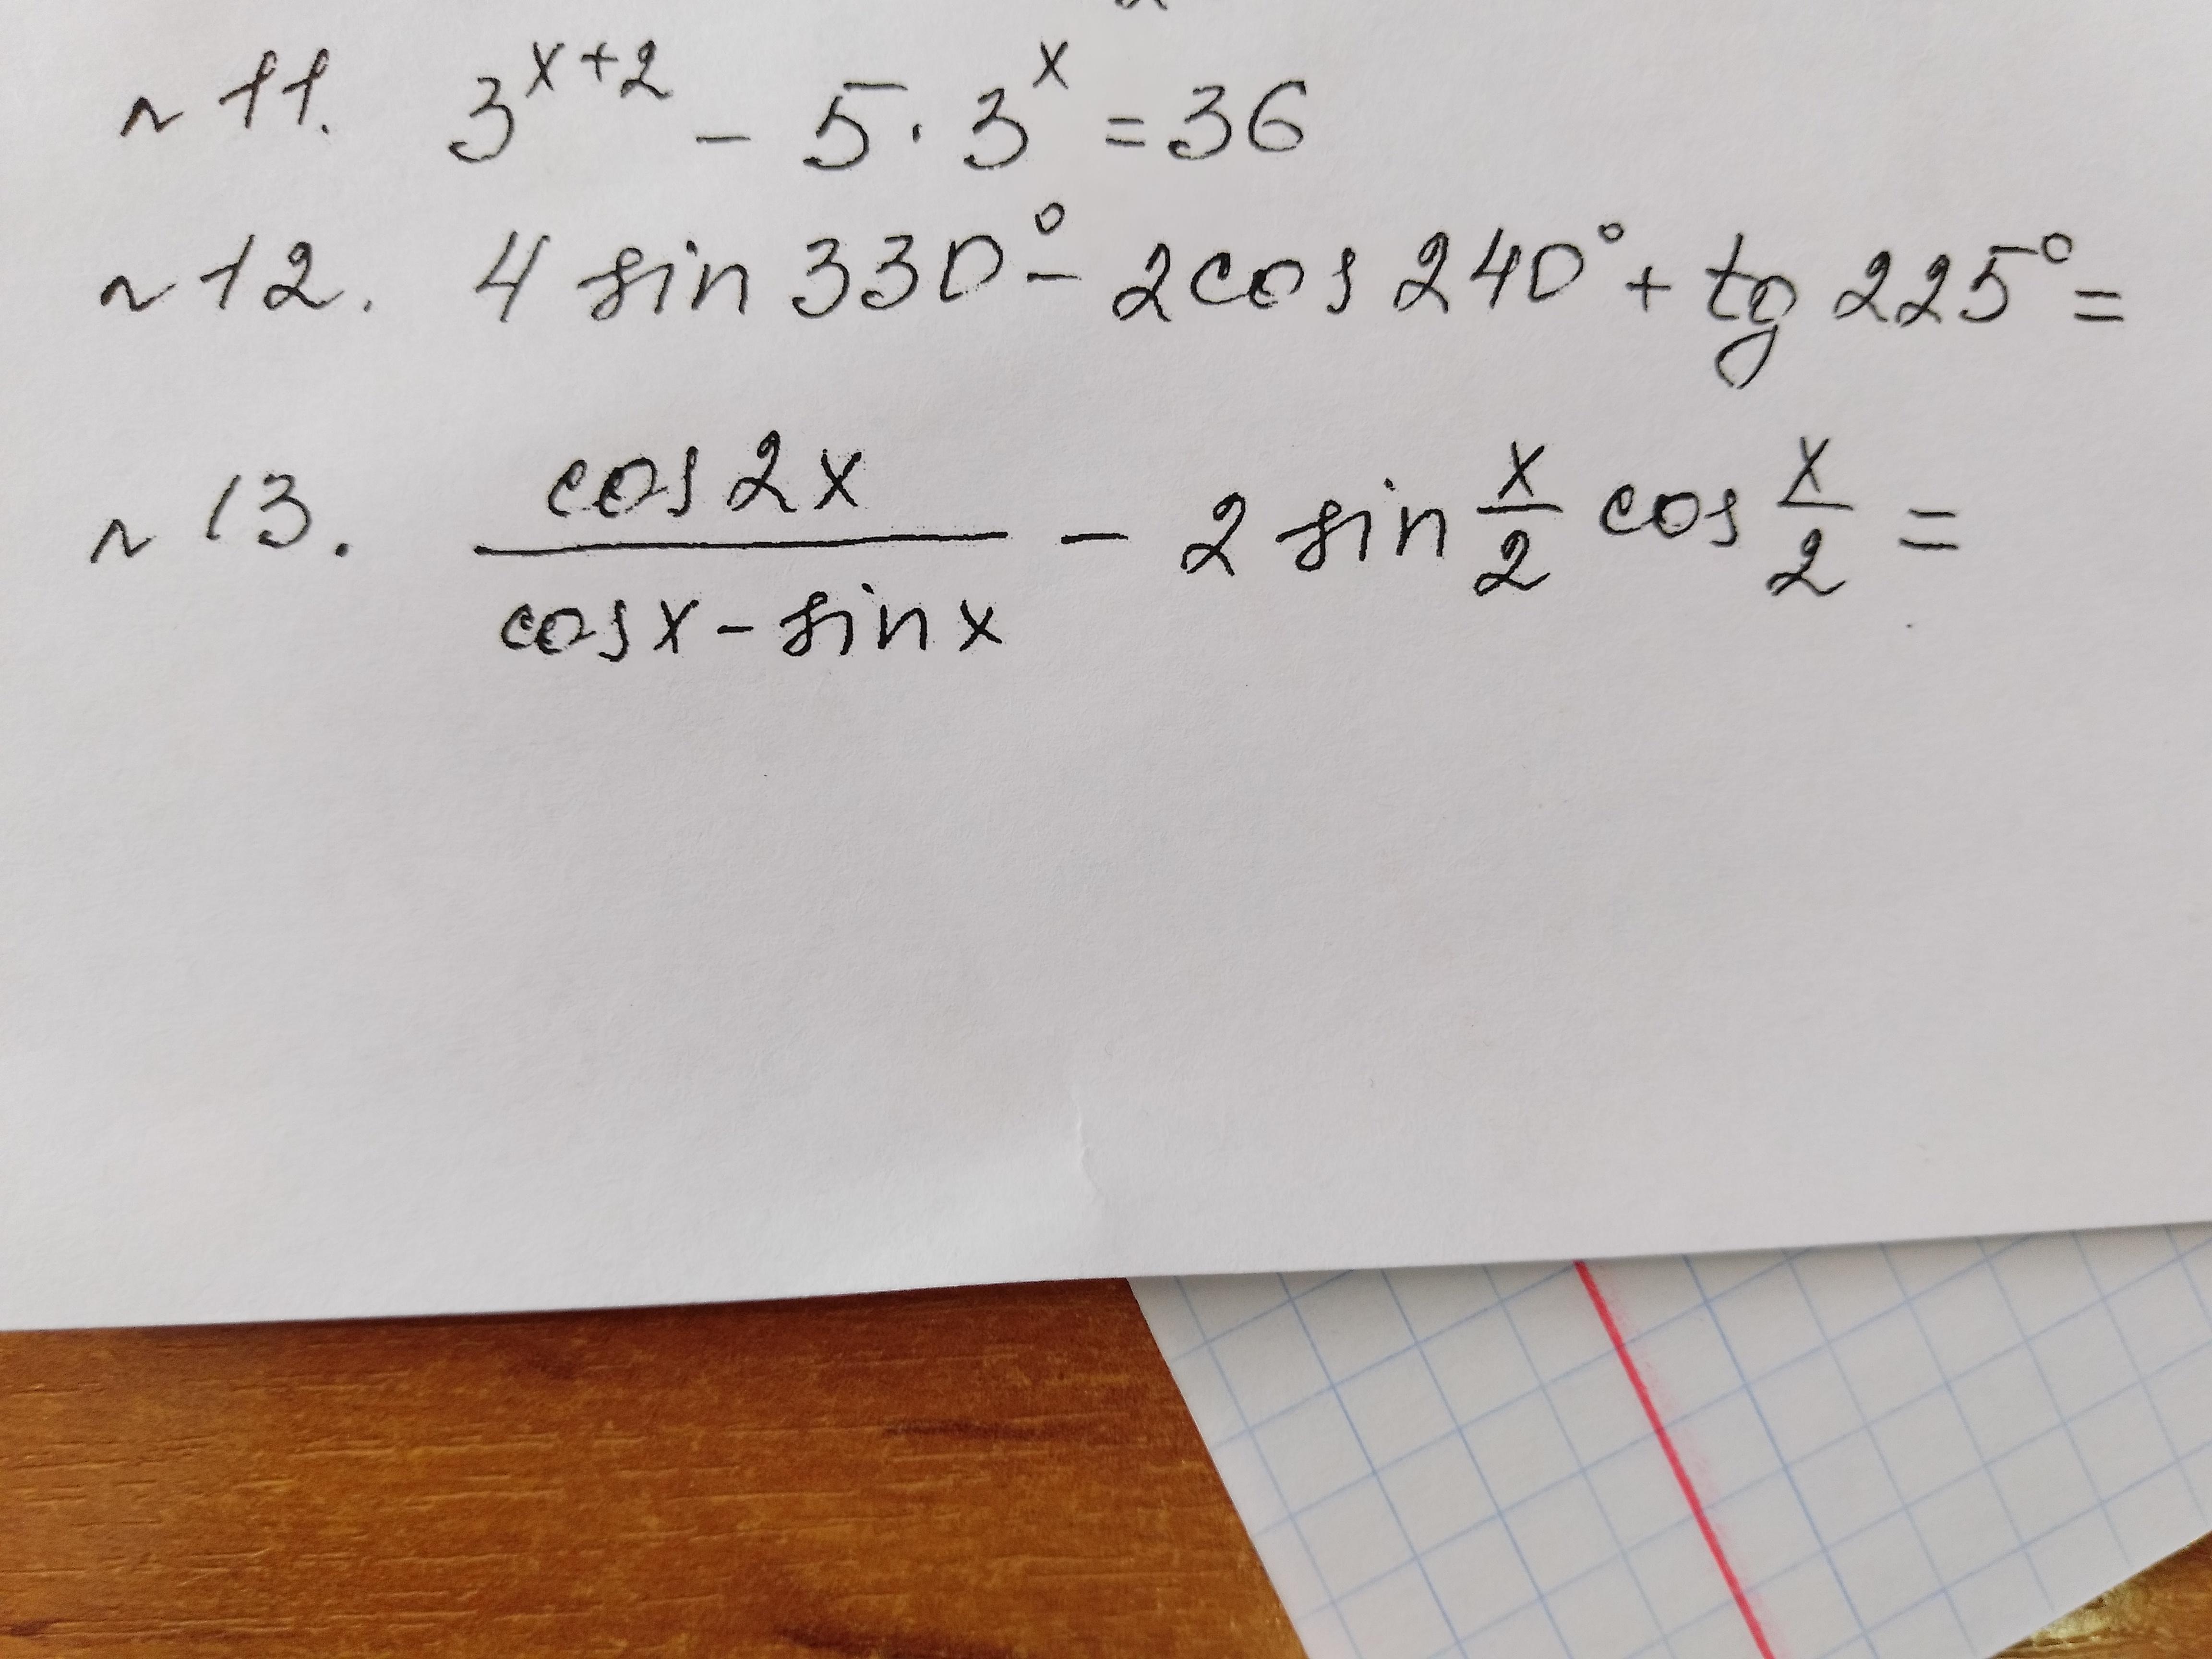 ~ 11. 3^{x+2} - 5 · 3^x = 36
~ 12. 4 sin 330° - 2 cos 240° + tg 225° =
~ 13. \frac{cos 2x}{cos x - sin x} - 2 sin \frac{x}{2} cos \frac{x}{2} =